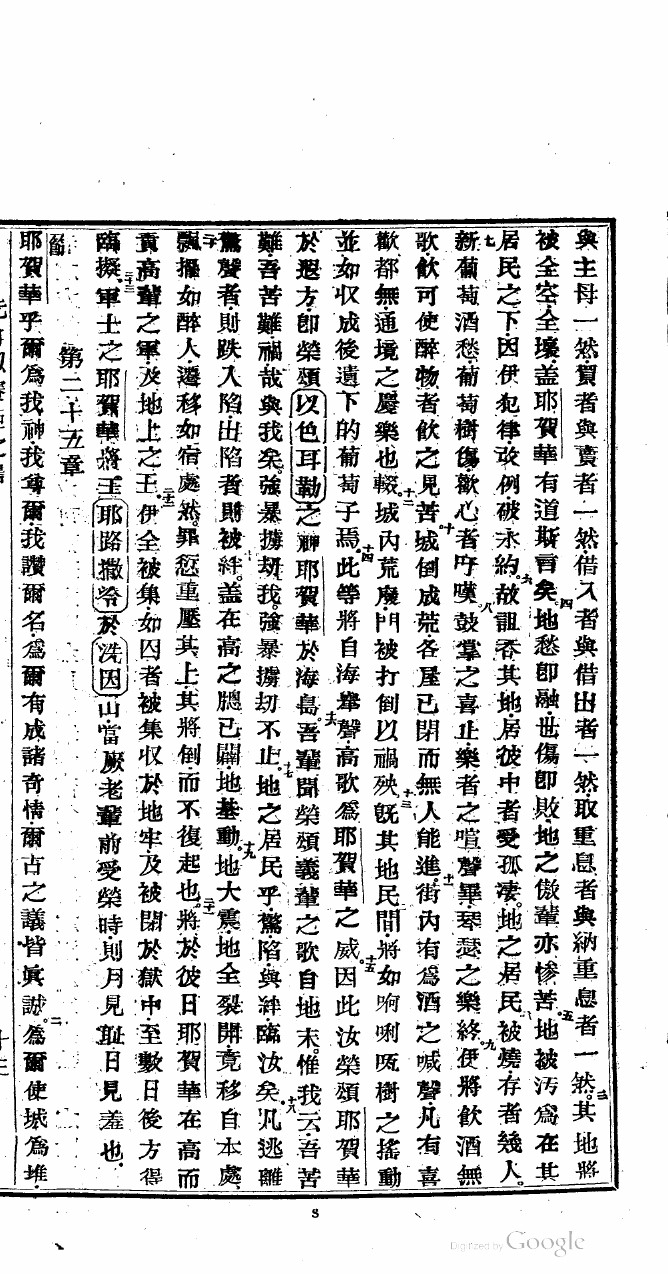 與主母一然買者與賣者一然借入者與借出者一然取重息者與納重息者一然三其地將
被全空全壞蓋耶賀華有道斯言矣四地愁卽融世傷卽敗地之傲輩亦慘苦五地被污爲在其
居民之下因伊犯律改例破永約六故詛吞其地居彼中者受孤凄地之居民被燒存者幾人
七新葡萄酒愁葡萄樹傷歡心者吁嘆八鼓掌之喜止樂者之喧聲畢琴瑟之樂終九伊將飲酒無
歌飲可使醉物者飲之見苦十城倒成荒各屋已閉而無人能進十一街內有爲酒之喊聲凡有喜
歡都無通境之慶樂也輟十二城內荒廢門被打倒以禍殃十三旣其地民間將如啊唎𠯢樹之搖動
並如収成後遺下的葡萄子焉十四此等將自海舉聲高歌爲耶賀華之威十五因此汝榮頌耶賀華
於遐方卽榮頌以色耳勒之神耶賀華於海島十六吾輩聞榮頌義輩之歌自地末惟我云吾苦
難吾苦難禍哉與我矣強暴擄刼我強暴擄刼不止十七地之居民乎驚陷與絆臨汝矣十八凡逃離
驚聲者則跌入陷出陷者則被絆蓋在高之牕已闢地基動十九地大震地全裂開竟移自本處
二十飄搖如醉人遷移如宿處然罪愆重壓其上其將倒而不復起也二十一將於彼日耶賀華在高而
責高輩之軍及地上之王二十二伊全被集如囚者被集収於地牢及被閉於獄中至數日後方得
臨擬二十三軍士之耶賀華將王耶路撒冷於洗因山當厥老輩前受榮時則月見恥日見羞也
第二十五章
一節
耶賀華乎爾爲我神我尊爾我讚爾名爲爾有成諸奇情爾古之議皆眞誠二爲爾使城爲堆
s
Digitized by Google